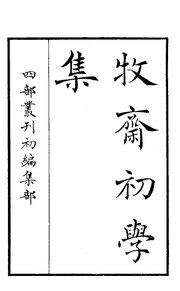 牧齋初學
集
四部叢刊初編集部